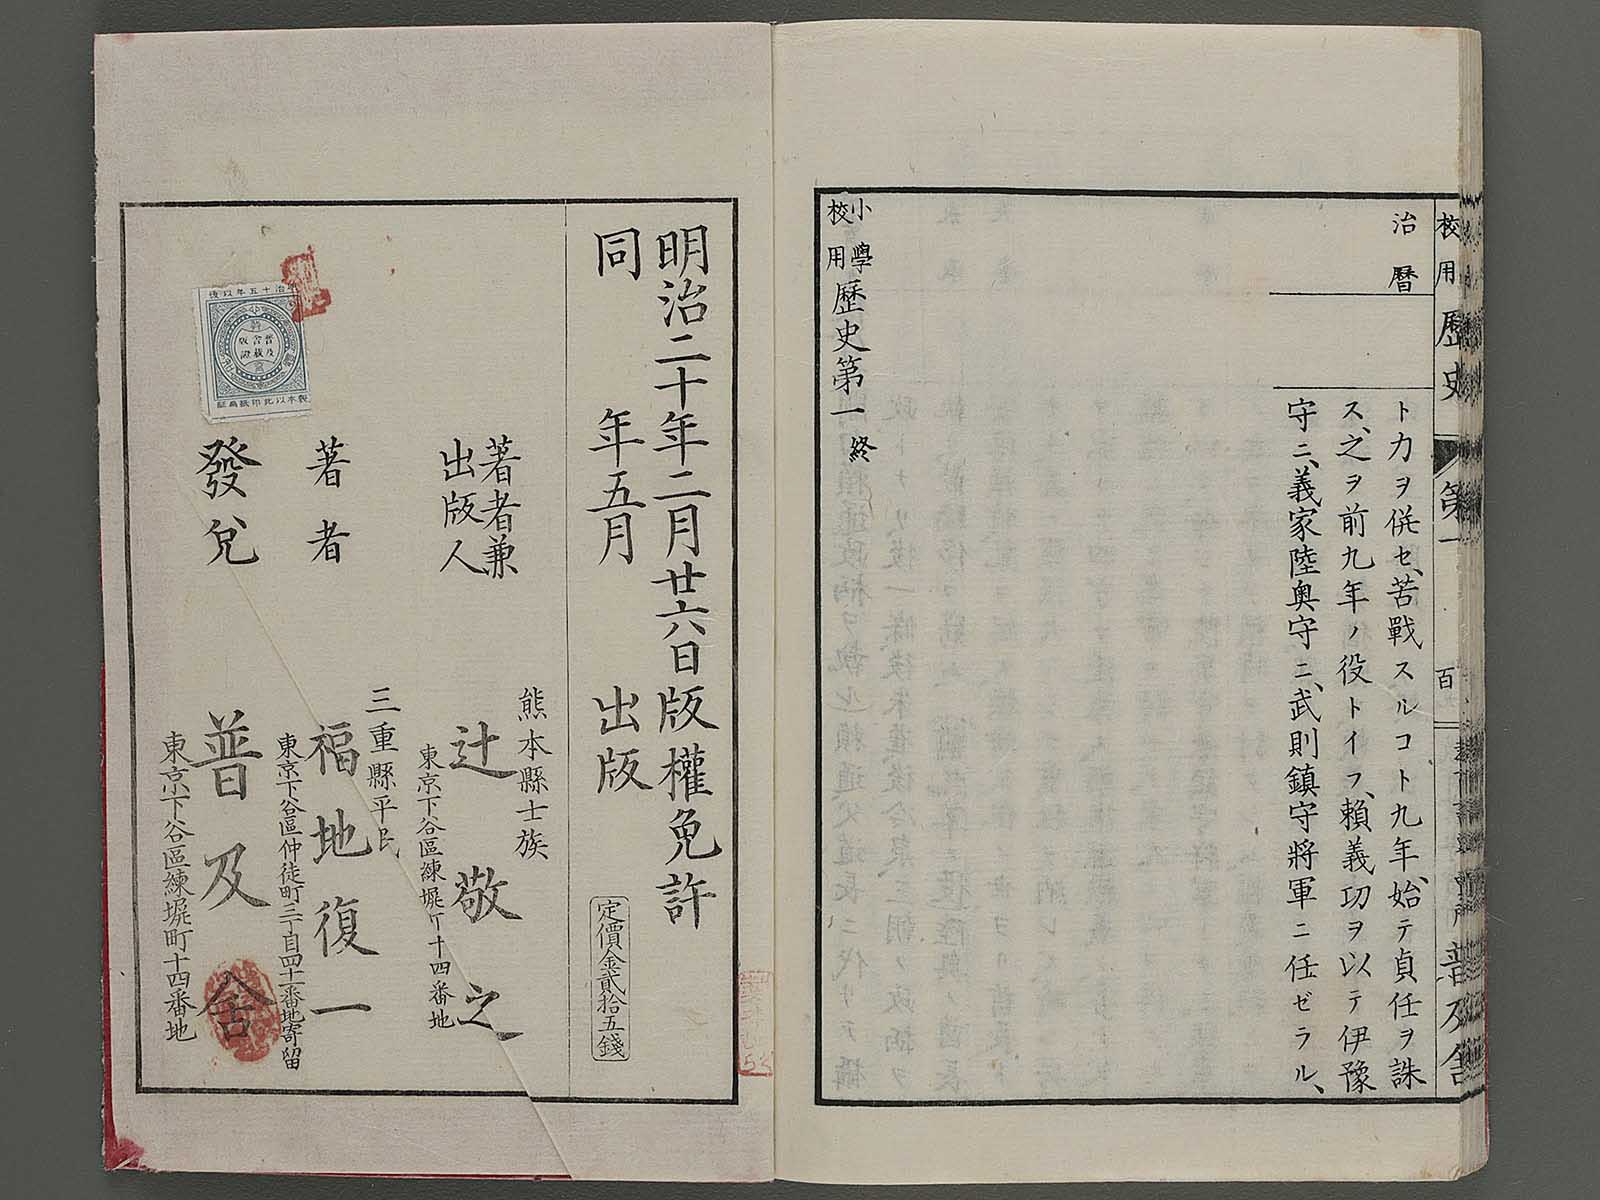 校用 歷史
第一
百
普及舍
治曆
ト力ヲ併セ、苦戰スルコト九年、始テ貞任ヲ誅
ス、之ヲ前九年ノ役トイフ、賴義功ヲ以テ伊豫
守ニ、義家陸奧守ニ、武則鎮守將軍ニ任ゼラル、
小學校用歷史第一 終
明治二十年二月廿六日版權免許
同 年五月 出版
定價金貳拾五錢
著者兼出版人
熊本縣士族
辻敬之
東京下谷區練塀町十四番地
著者
三重縣平民
福地復一
東京下谷區仲徒町三丁目四十一番地寄留
發兌
普及舍
東京下谷區練塀町十四番地
明治十五年以後
普及舍出版證
製本以此印紙爲証